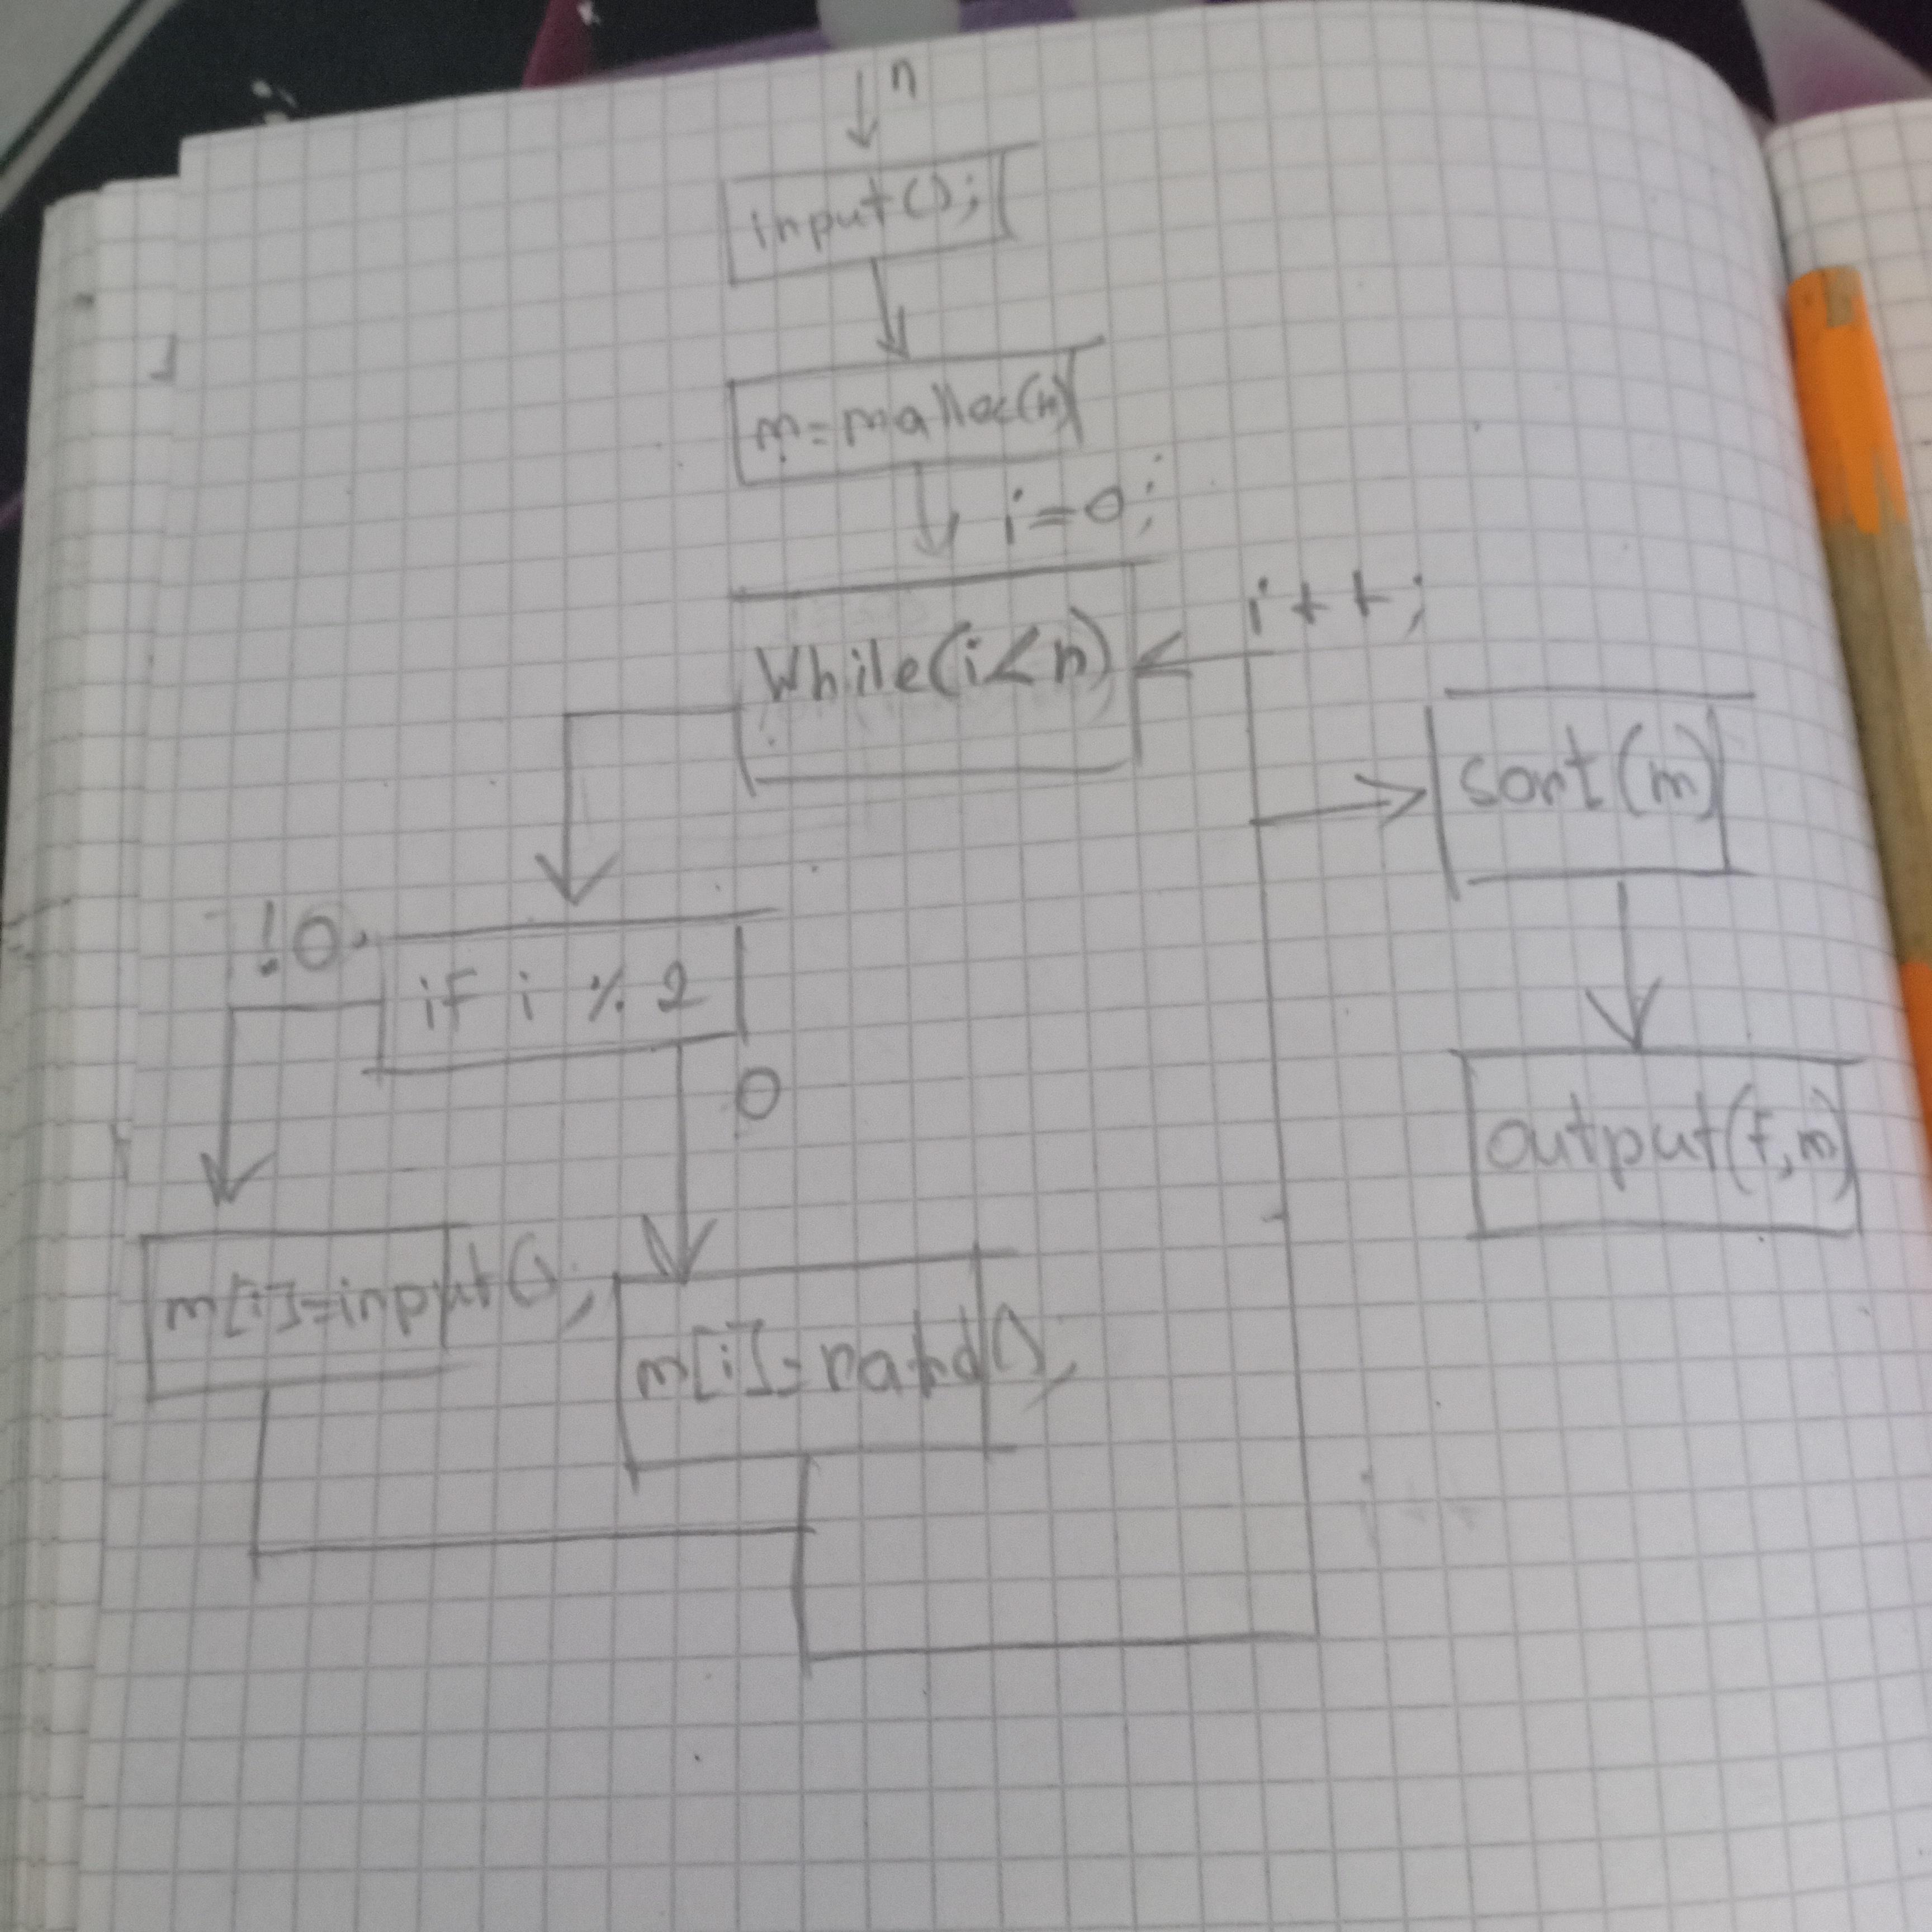 n
input();
m=malloc(n)
i=0;
While(i<n)
i++;
sort(m)
!0
if i % 2
0
output(f,m)
m[i]=input();
m[i]=rand();